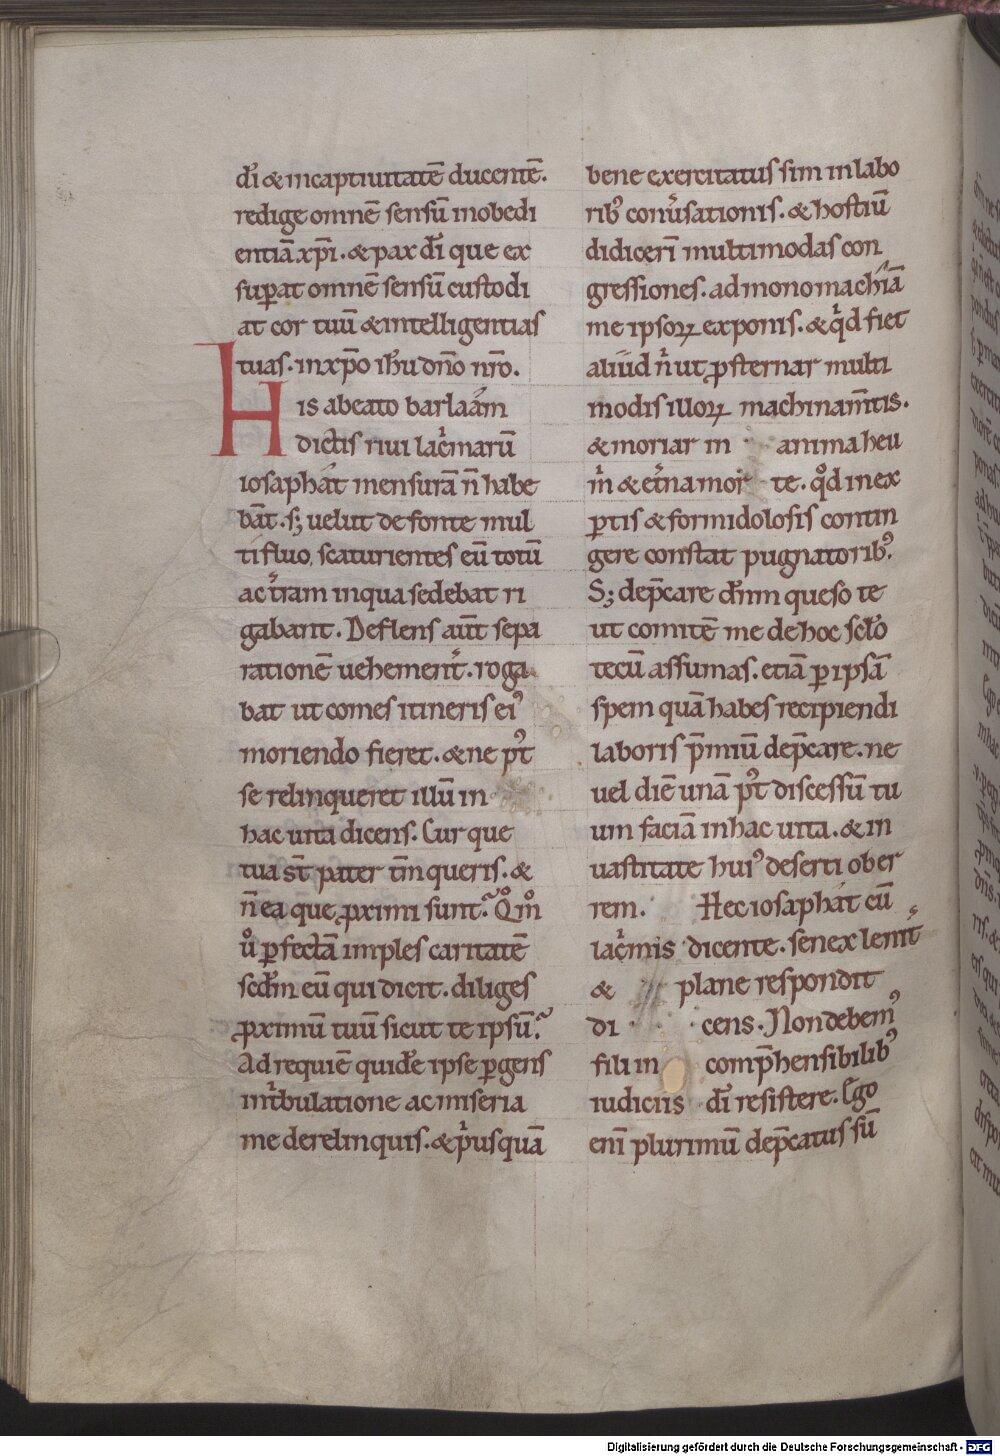 dī & incaptiuitatē ducentē.
redige omnē sensū inobedi
entiā xp̄i. & pax dī que ex
sup̱at omnē sensū custodi
at cor tuū & intelligentias
tuas. in xp̄o ih̄u dn̄o nr̄o.
His a beato barlaám
dictis riui lac̓marū
iosaphát mensurā n̄ habe
bāt. s; uelut de fonte mul
tifluo, scaturientes eū totū
ac t̓ram in qua sedebat ri
gabant. Deflens aut̄ sepa
rationē uehement̓. roga
bat ut comes itineris ei᾽
moriendo fieret. & ne p᾽t
se relinqueret illū in
hac uita dicens. Cur que
tua st̄ pater tm̄ queris. &
n̄ ea que ꝓximi sunt? Qm̊
ů ꝑfectā imples caritatē
scd̄m eū qui dicit. diliges
ꝓximū tuū sicut te ipsū?
Ad requiē quidē ipse ꝑgens
int̓bulatione ac miseria
me derelinquis. & p̓usquā
bene exercitatus sim in labo
rib᾽ conu̓sationis. & hostiū
didicerī multimodas con
gressiones. ad monomachíā
me ipsoꝝ exponis. & q̓d fiet
aliud n̓ ut ꝓsternar multi
modis illoꝝ machinam̄tis.
& moriar in anima heu
m̓ & et̓na morte. qd̊ inex
ꝑtis & formidolosis contin
gere constat pugnatorib᾽.
S; dep̄care dn̄m queso te
ut comitē me de hoc sc̄lo
tecū assumas. etiā ꝑ ipsā
spem quā habes recipiendi
laboris p̄miū dep̄care. ne
uel diē unā p᾽t discessū tu
um faciā in hac uita. & in
uastitate hui᾽ deserti ober
rem. Hec iosaphát cū
lac̓mis dicente. senex lenit̓
& plane respondit
dicens. Non debem᾽
fili in comp̄hensibilib᾽
iudiciis dī resistere. Ego
enī plurimū dep̄catus sū
Digitalisierung gefördert durch die Deutsche Forschungsgemeinschaft - DFG